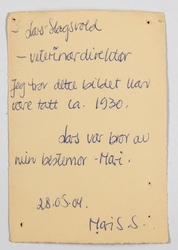 Lars Slagsvold
- veterinærdirektør
Jeg tror dette bildet kan
være tatt ca. 1930.
Lars var bror av
min bestemor - Mari.
28.05.04.
Mari S. S.